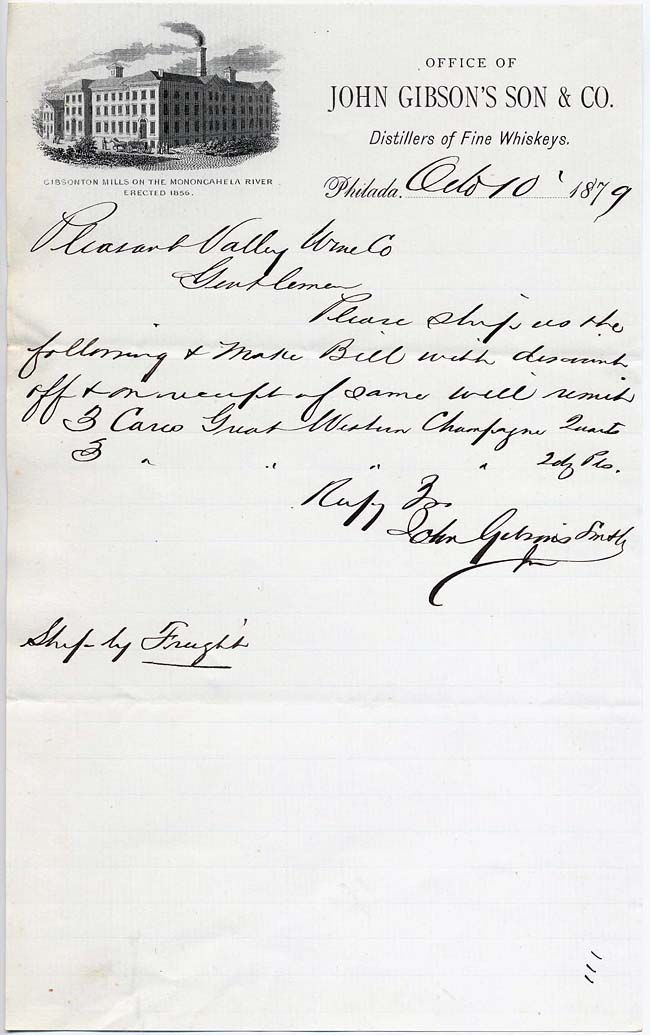 OFFICE OF
JOHN GIBSON'S SON & CO.
Distillers of Fine Whiskeys.
GIBSONTON MILLS ON THE MONONGAHELA RIVER
ERECTED 1856.
Philada. Octo 10 1879
Pleasant Valley Wine Co
Gentlemen
Please ship us the
following & Make Bill with discount
off & on receipt of same will remit
3 Cases Great Western Champagne Quarts
3 " " " " 2dz Pts.
John Gibson's
Ship by Freight